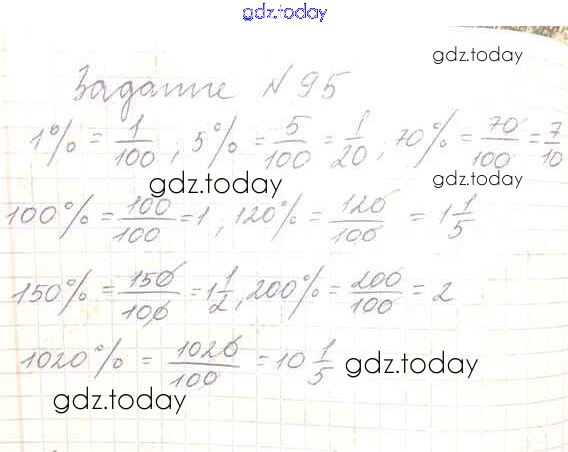 gdz.today
gdz.today
Задание №95
1% = 1/100 ; 5% = 5/100 = 1/20 ; 70% = 70/100 = 7/10
gdz.today gdz.today
100% = 100/100 = 1 , 120% = 120/100 = 1 1/5
150% = 150/100 = 1 1/2 , 200% = 200/100 = 2
1020% = 1020/100 = 10 1/5 gdz.today
gdz.today